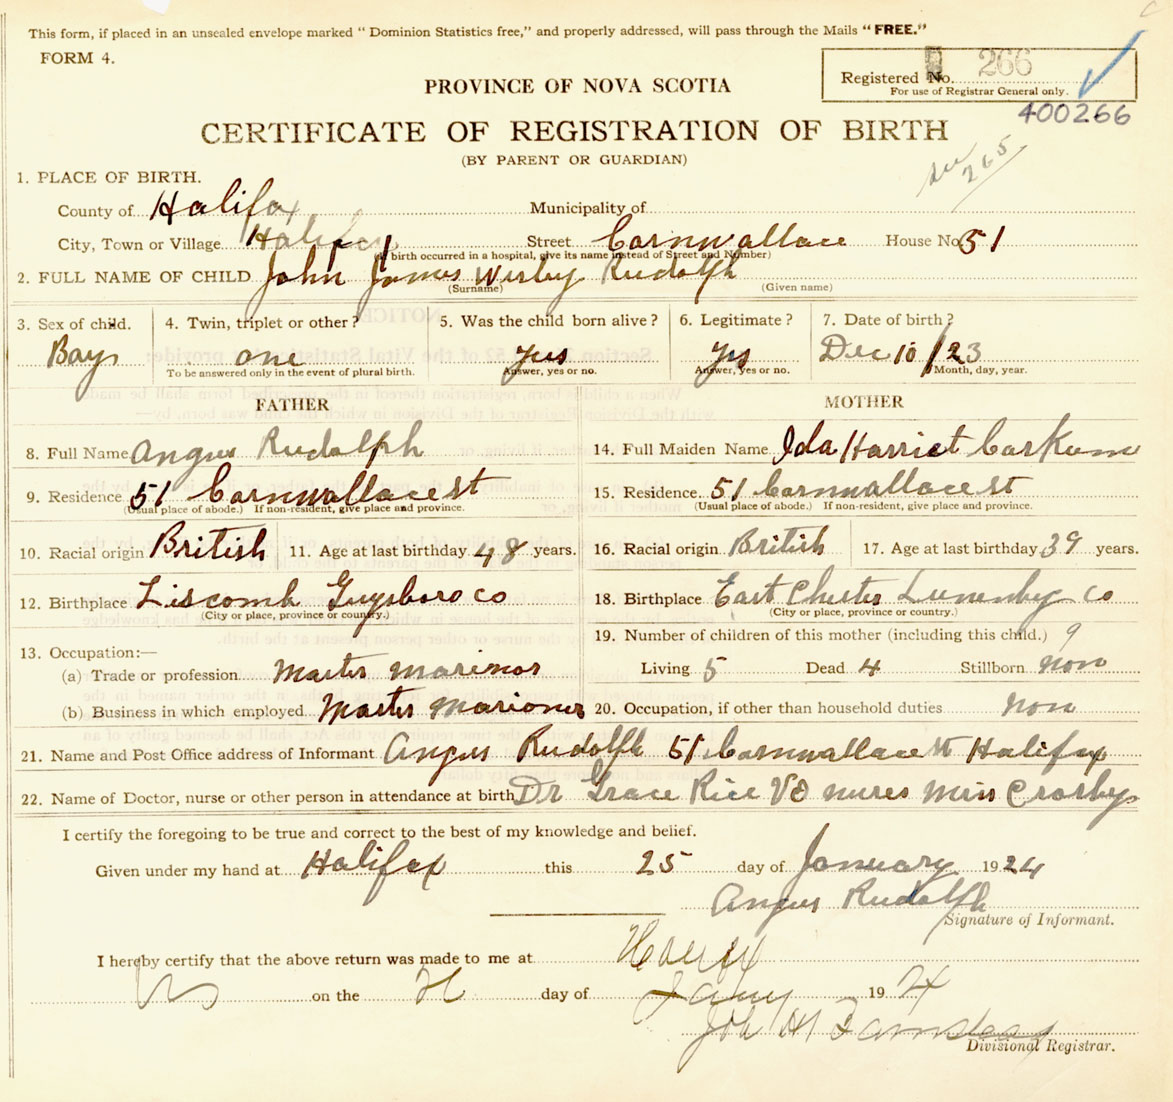 This form, if placed in an unsealed envelope marked "Dominion Statistics free," and properly addressed, will pass through the Mails "FREE."
FORM 4.
Registered No. 266
For use of Registrar General only.
400266
PROVINCE OF NOVA SCOTIA
CERTIFICATE OF REGISTRATION OF BIRTH
(BY PARENT OR GUARDIAN)
265
1. PLACE OF BIRTH.
County of Halifax Municipality of
City, Town or Village Halifax Street Cornwallace House No. 51
(If birth occurred in a hospital, give its name instead of Street and Number)
2. FULL NAME OF CHILD John James Wesley Rudolph
(Surname) (Given name)
3. Sex of child. 4. Twin, triplet or other? 5. Was the child born alive? 6. Legitimate? 7. Date of birth?
Boys one yes yes Dec 10 /23
To be answered only in the event of plural birth. Answer, yes or no. Answer, yes or no. Month, day, year.
FATHER MOTHER
8. Full Name Angus Rudolph 14. Full Maiden Name Ida Harriet
9. Residence 51 Cornwallace st 15. Residence 51 Cornwallace st
(Usual place of abode.) If non-resident, give place and province. (Usual place of abode.) If non-resident, give place and province.
10. Racial origin British 11. Age at last birthday 48 years. 16. Racial origin British 17. Age at last birthday 39 years.
12. Birthplace Liscomb Guysboro co 18. Birthplace East Chester Lunenby co
(City or place, province or country.) (City or place, province or country.)
19. Number of children of this mother (including this child.) 9
13. Occupation:—
(a) Trade or profession Master marinor Living 5 Dead 4 Stillborn non
(b) Business in which employed Master Marioner 20. Occupation, if other than household duties non
21. Name and Post Office address of Informant Angus Rudolph 51 Cornwallace st Halifax
22. Name of Doctor, nurse or other person in attendance at birth Dr Grace Rice nures miss Crosby
I certify the foregoing to be true and correct to the best of my knowledge and belief.
Given under my hand at Halifax this 25 day of January 1924
Angus Rudolph
Signature of Informant.
I hereby certify that the above return was made to me at
on the day of 19
Divisional Registrar.